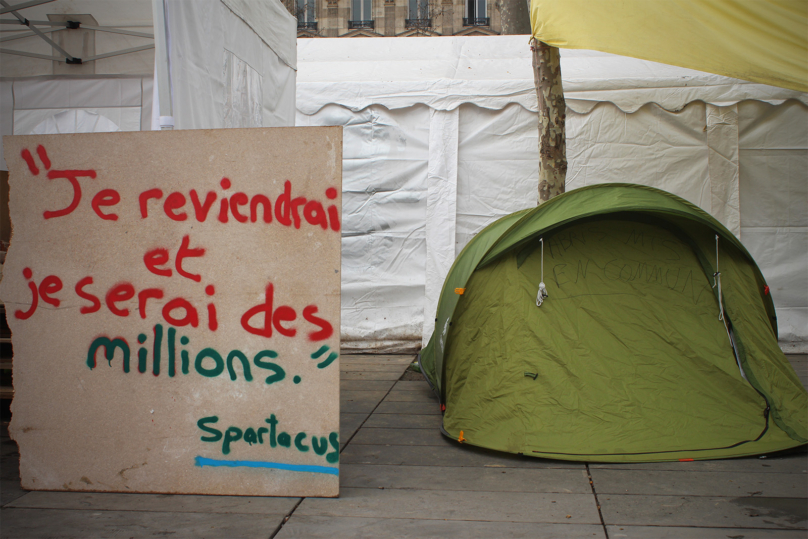 "Je reviendrai
et
je serai des
millions."
Spartacus